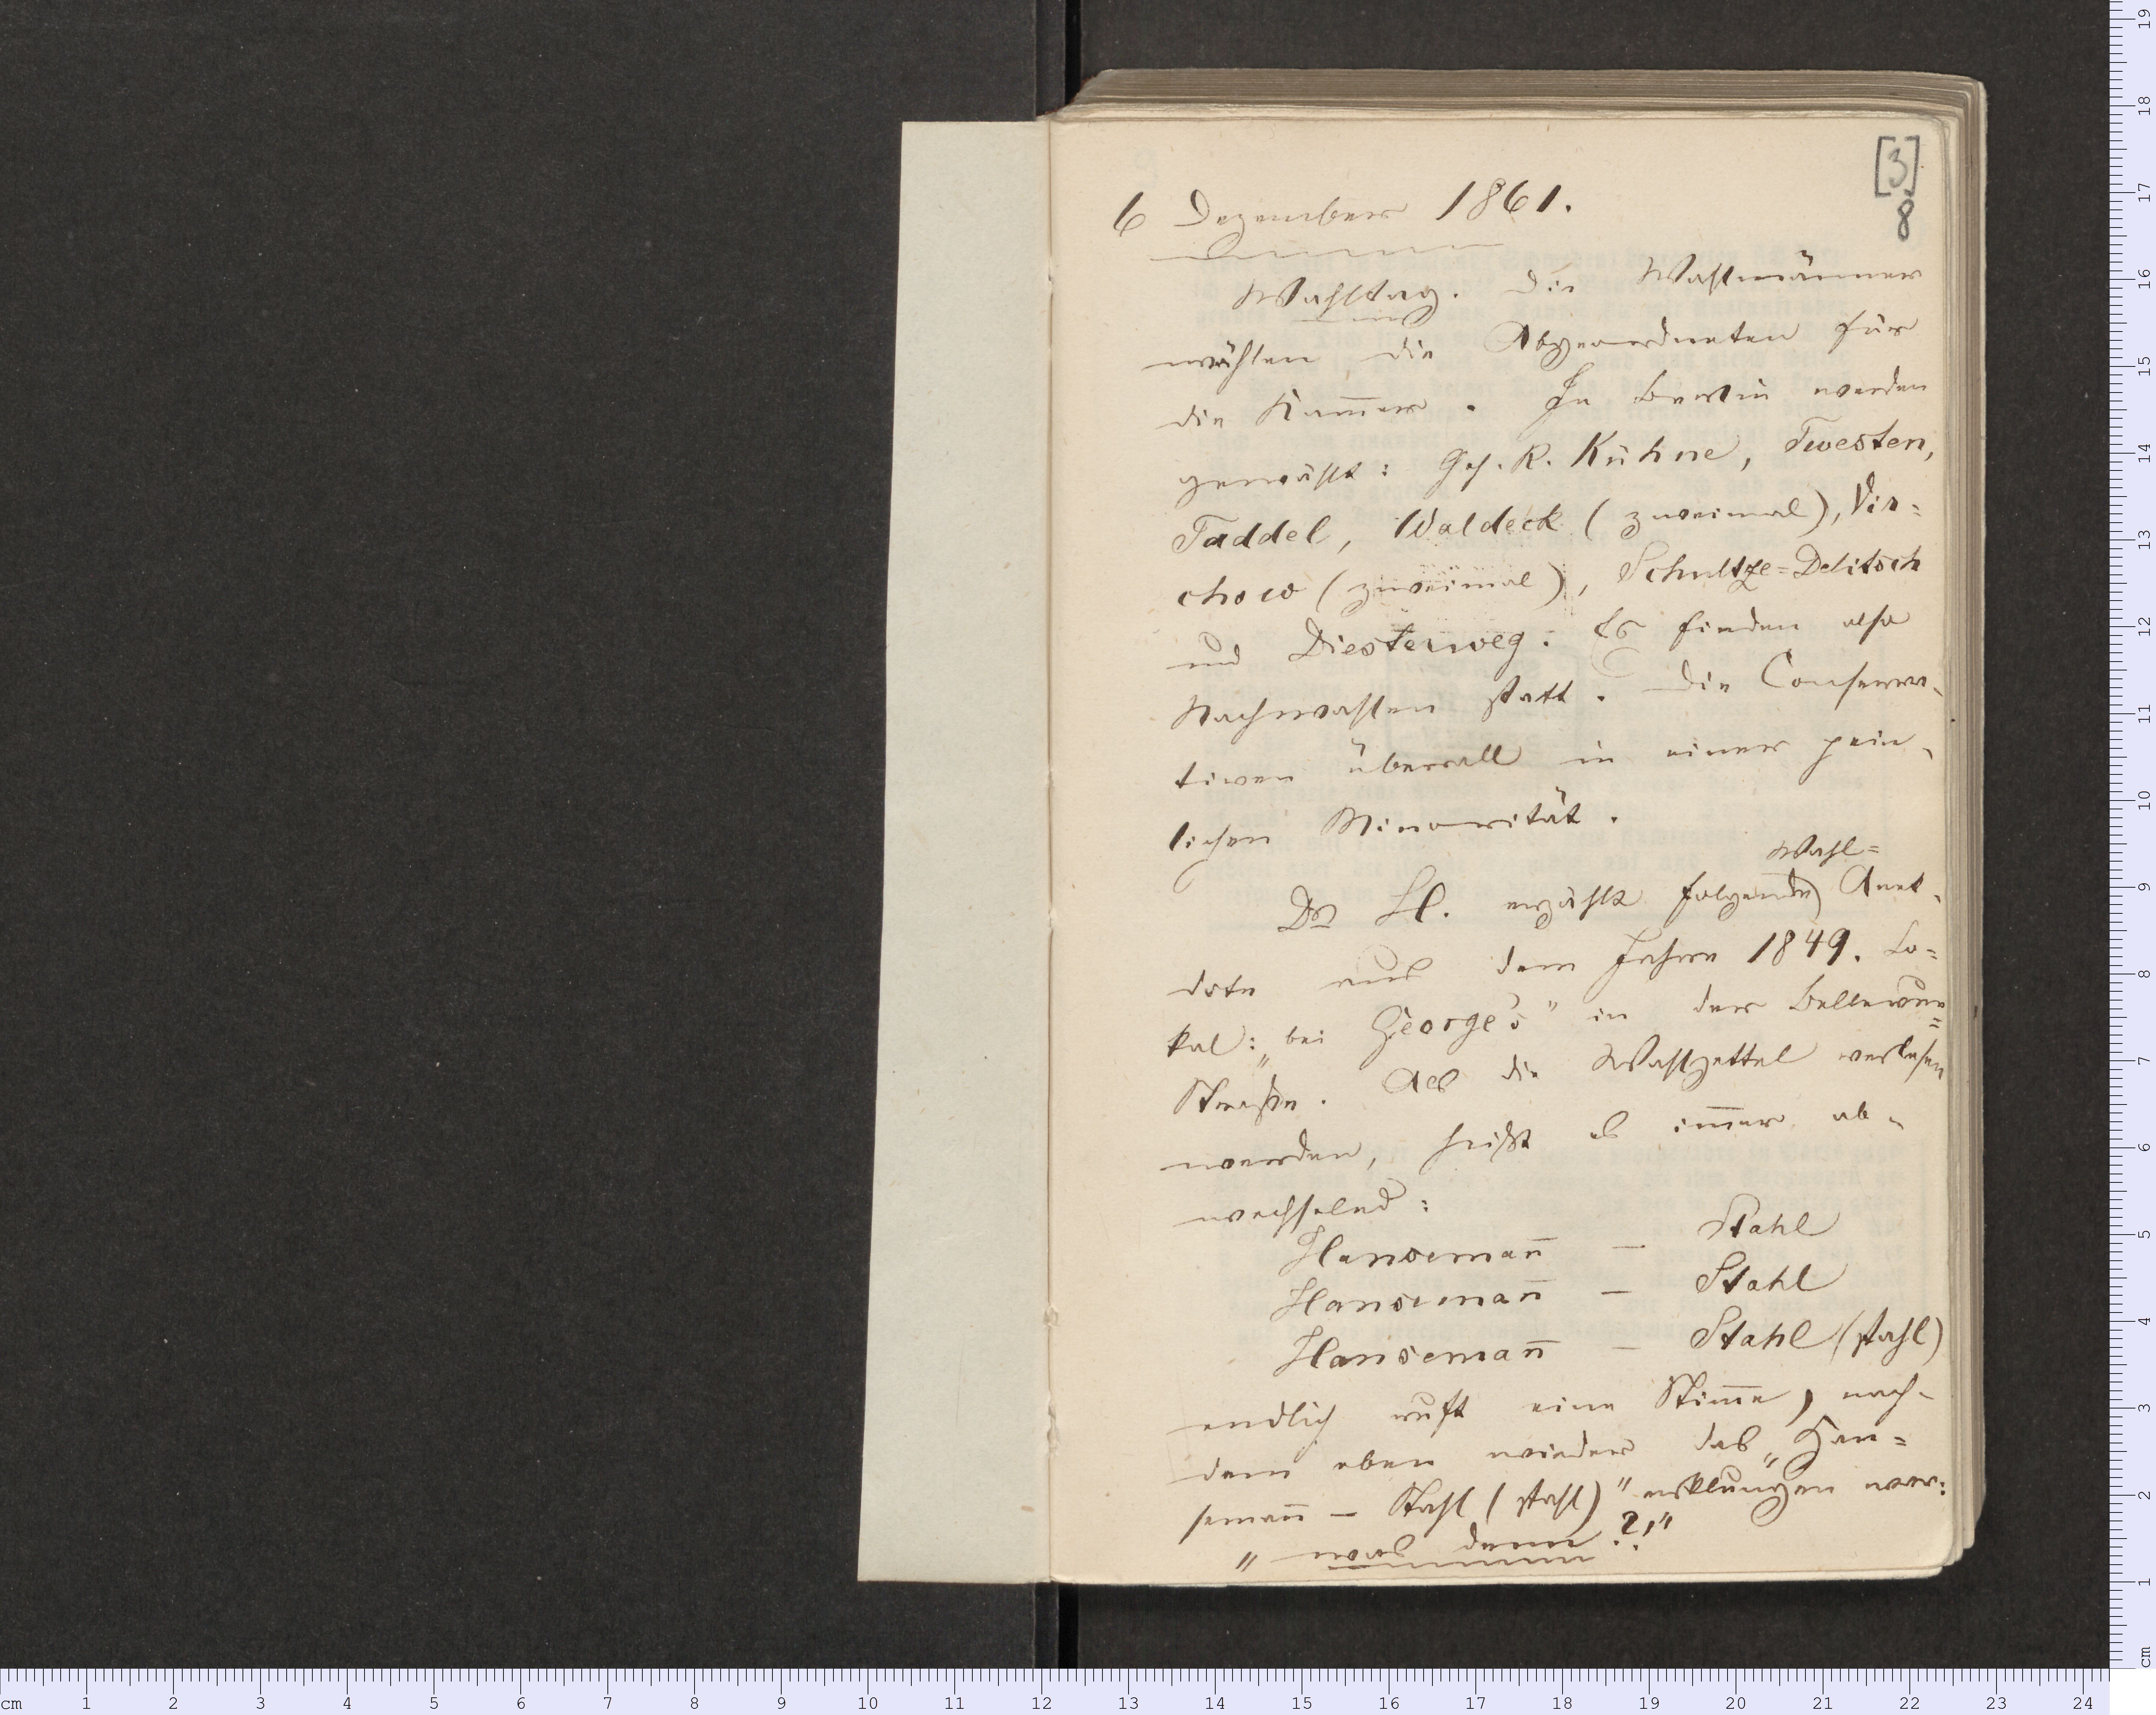 [3]
8
6 Dezember 1861.
Wahltag. Die Wahlmänner
wählen die Abgeordneten für
die Kam̄er. In Berlin werden
gewählt: Geh. R. Kühne, Twesten,
Taddel, Waldeck (zweimal), Vir=
chow (zweimal), Schultze=Delitsch
und Diesterweg. Es finden also
Nachwahlen statt. Die Conserva-
tiven überall in einer pein-
lichen Minorität.
Wahl=
Dr H. erzählt folgende Anek-
dote aus dem Jahre 1849. Lo=
kal: „bei George's" in der Bellevue
=
Straße. Als die Wahlzettel verlesen
werden, heißt es im̄er ab-
wechselnd:
Hanseman̄ — Stahl
Hanseman̄ — Stahl
Hanseman̄ — Stahl (stahl)
endlich ruft eine Stim̄e, nach-
dem eben wieder das „Han=
seman̄ — Stahl (stahl)" erklungen war:
„was denn?"